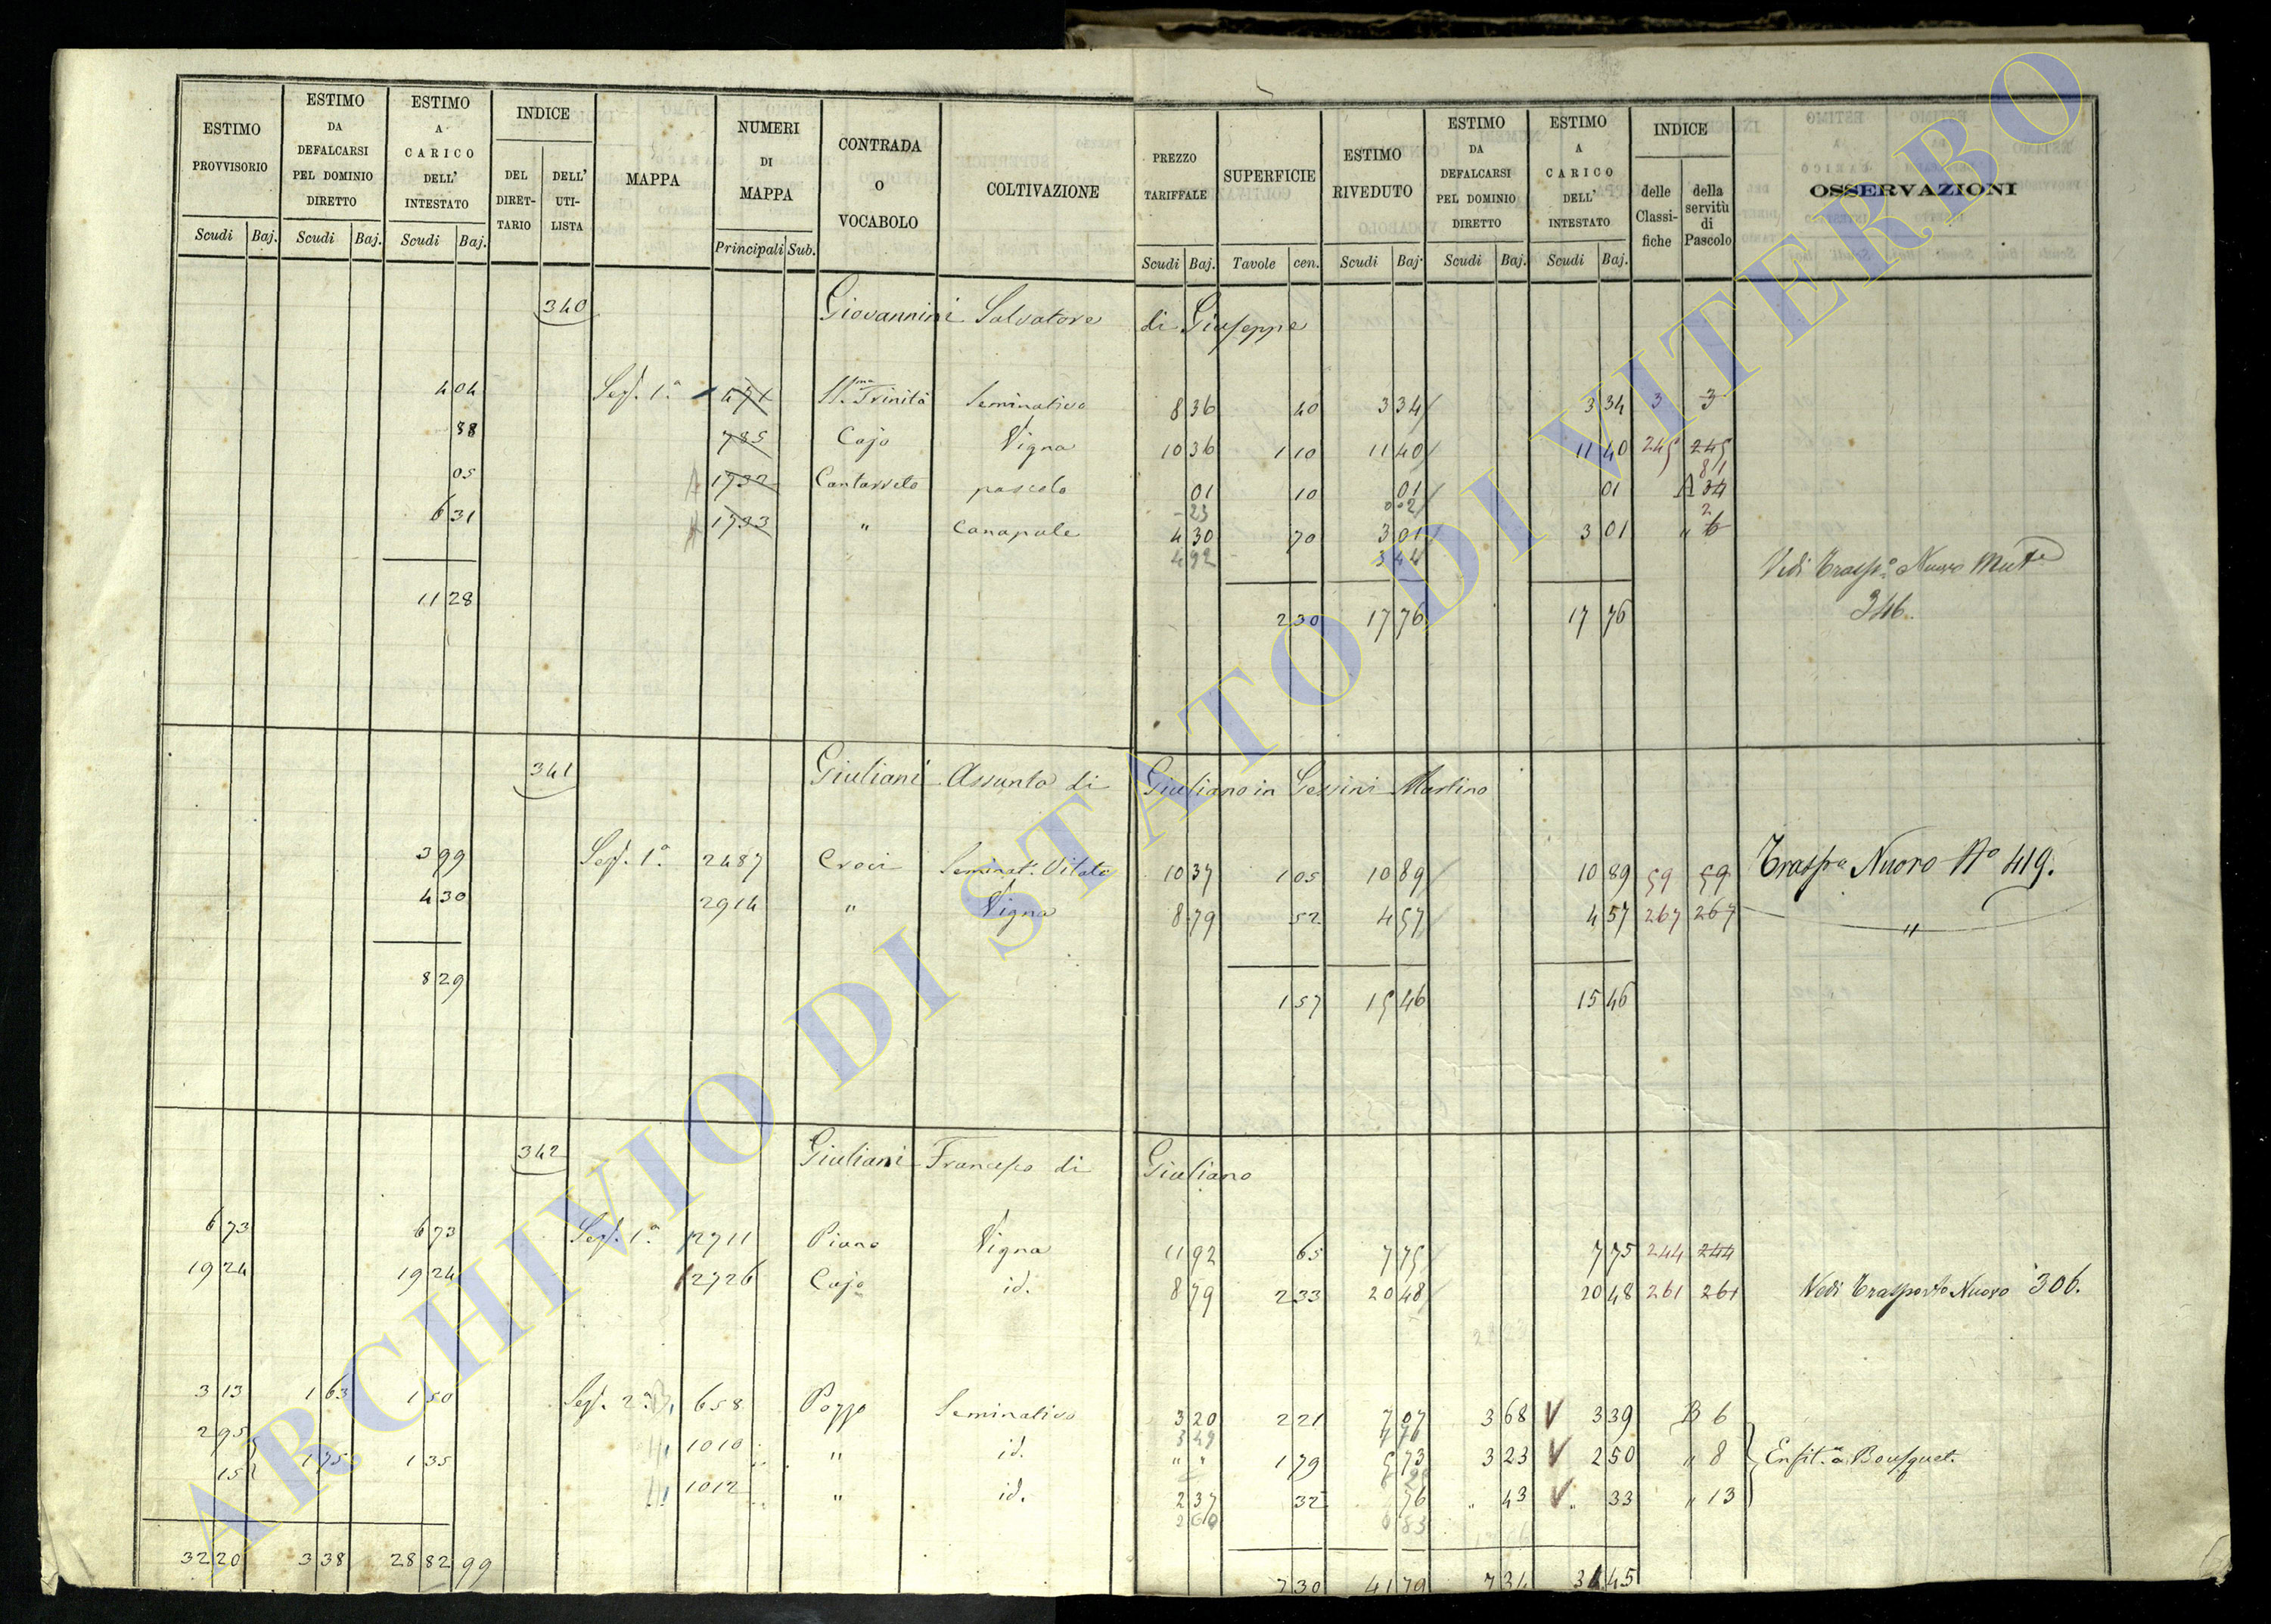 ESTIMO PROVVISORIO Scudi Baj.
ESTIMO DA DEFALCARSI PEL DOMINIO DIRETTO Scudi Baj.
ESTIMO A CARICO DELL' INTESTATO Scudi Baj.
INDICE DEL DIRET-TARIO DELL' UTI-LISTA
MAPPA
NUMERI DI MAPPA Principali Sub.
CONTRADA O VOCABOLO
COLTIVAZIONE
PREZZO TARIFFALE Scudi Baj.
SUPERFICIE Tavole cen.
ESTIMO RIVEDUTO Scudi Baj
ESTIMO DA DEFALCARSI PEL DOMINIO DIRETTO Scudi Baj.
ESTIMO A CARICO DELL' INTESTATO Scudi Baj.
INDICE delle Classi-fiche della servitù di Pascolo
OSSERVAZIONI
340 Giovannini Salvatore di Giuseppe
4 04 Sez. 1ª 471 SS.ma Trinità Seminativo 8 36 40 3 34 3 34 3 3
88 785 Cajo Vigna 10 36 1 10 11 40 11 40 245 245
05 1732 pascolo 01 10 01 01 A 34 81
23 002
6 31 1733 " Canapule 4 30 70 3 01 3 01 " 6 2
4 92 3 44
Vedi Trasp.o Nuovo
346.
11 28 2 30 17 76 17 76
341 Giuliani Assunta di Giuliano in Martino
3 99 Sez. 1ª 2487 Croci Seminat. Vitato 10 37 1 05 10 89 10 89 59 59 Nuovo No 419.
4 30 2914 " Vigna 8 79 52 4 57 4 57 267 267 "
8 29 1 57 15 46 15 46
342 Giuliani Francesco di Giuliano
6 73 6 73 Sez. 1ª 2711 Piano Vigna 11 92 65 7 75 7 75 244 244
19 24 19 24 2726 Cajo id. 8 79 2 33 20 48 20 48 261 261 Vedi Trasporto Nuovo 306.
3 13 1 63 1 50 Sez. 2ª 658 Pozzo Seminativo 3 20 2 21 7 07 3 68 V 3 39 B 6
3 49
2 95 1 75 1 35 1010 " id. " " 1 79 5 73 3 23 V 2 50 " 8 Enfit. a Bousquet.
15 1012 " id. 2 37 32 76 " 43 V " 33 " 13
2 60 83
32 20 3 38 28 82 99 7 30 41 79 7 34 34 45
ARCHIVIO DI STATO DI VITERBO